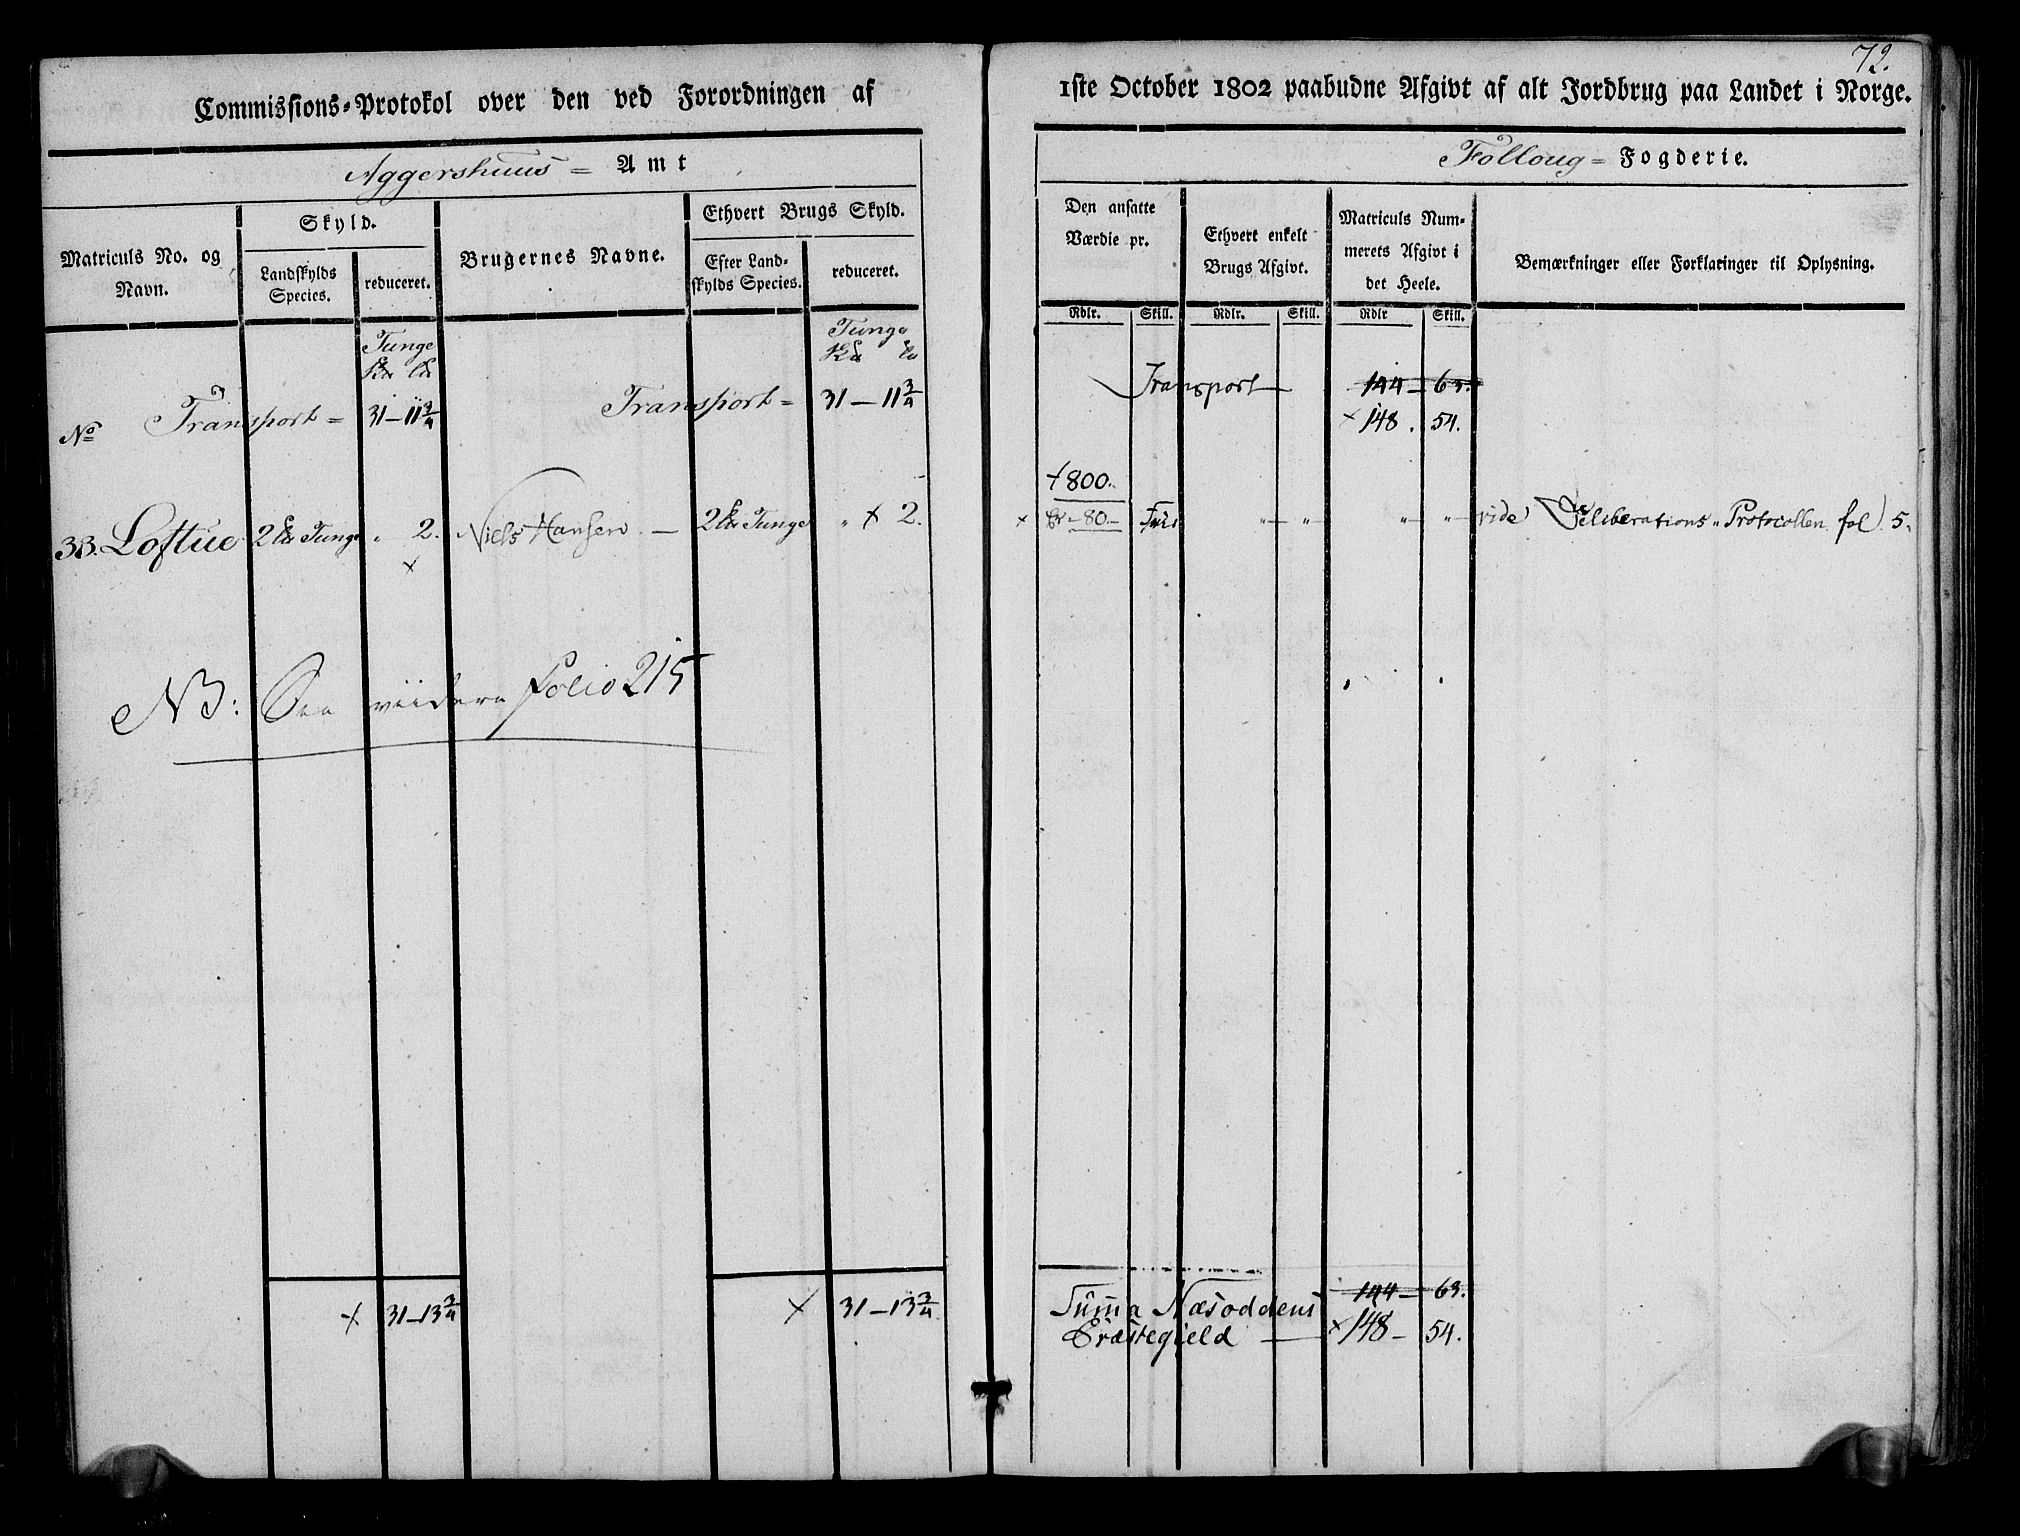 72.
Commissions-Protokol over den ved Forordningen af
1ste October 1802 paabudne Afgivt af alt Jordbrug paa Landet i Norge.
Aggershuus = Amt
Folloug = Fogderie.
Matriculs No. og Navn.
Skyld.
Landskylds Species.
reduceret.
Brugernes Navne.
Ethvert Brugs Skyld.
Efter Landskylds Species.
reduceret.
Den ansatte Værdie pr.
Ethvert enkelt Brugs Afgivt.
Matriculs Nummerets Afgivt i det Heele.
Bemærkninger eller Forklaringer til Oplysning.
Rdlr. Skill. Rdlr. Skill. Rdlr Skill.
Tunge
Tunge
No Transport = 31-11¾ Transport = 31-11¾ Transport 144-63.
× 148. 54.
+800.
33. Loftue 2 Tunge " 2. Niels Hansen — 2 Tunge " × 2. × 80 " " " " vide Deliberations Protocollen fol. 5.
×
NB: See viidere Folio 215
× 31-13¾ × 31-13¾
Summa Næsoddens 144-63.
Præstegield × 148-54.